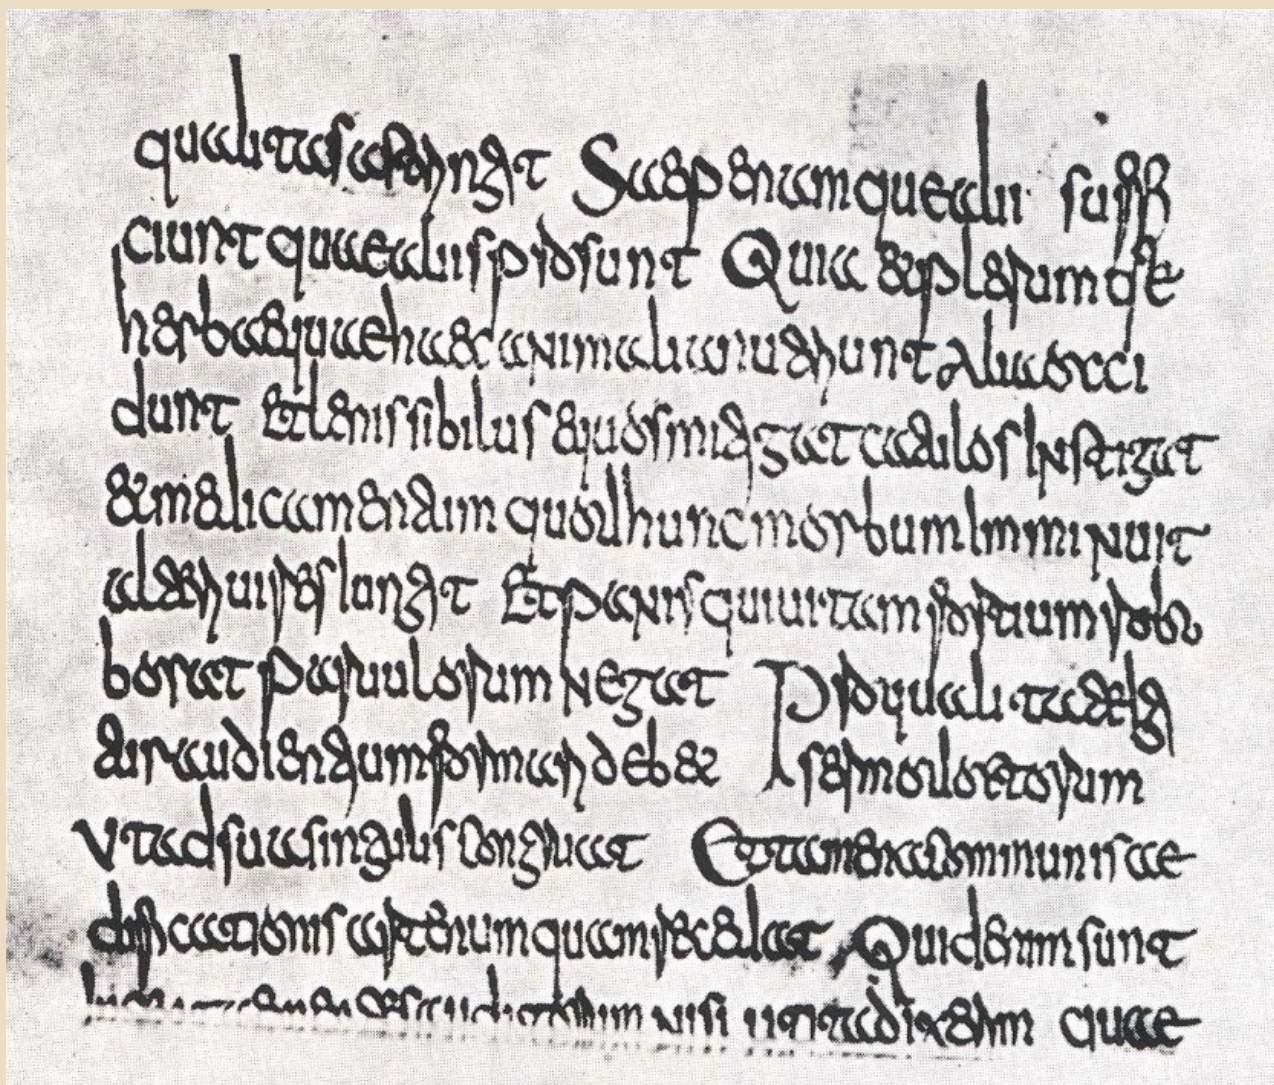 qualitas astringit Saepenumque alii suffi
ciunt quae aliis prosunt Quia et plerumque
herbae quae haec animalia nutriunt Alia occi
dunt Et lenis sibilus equos mitigat catulos Instigat
et medicamentum quod hunc morbum Imminuit
alteri uires iungit Et panis qui uitam fortium robo
borat paruulorum negat Pro qualitate ig
itur audientium formari debet sermo doctorum
Vt ad sua singulis congruat Et tamen a communis ae
dificationis arte numquam recedat Quid enim sunt
auditorum nisi ut ita dixerim quae